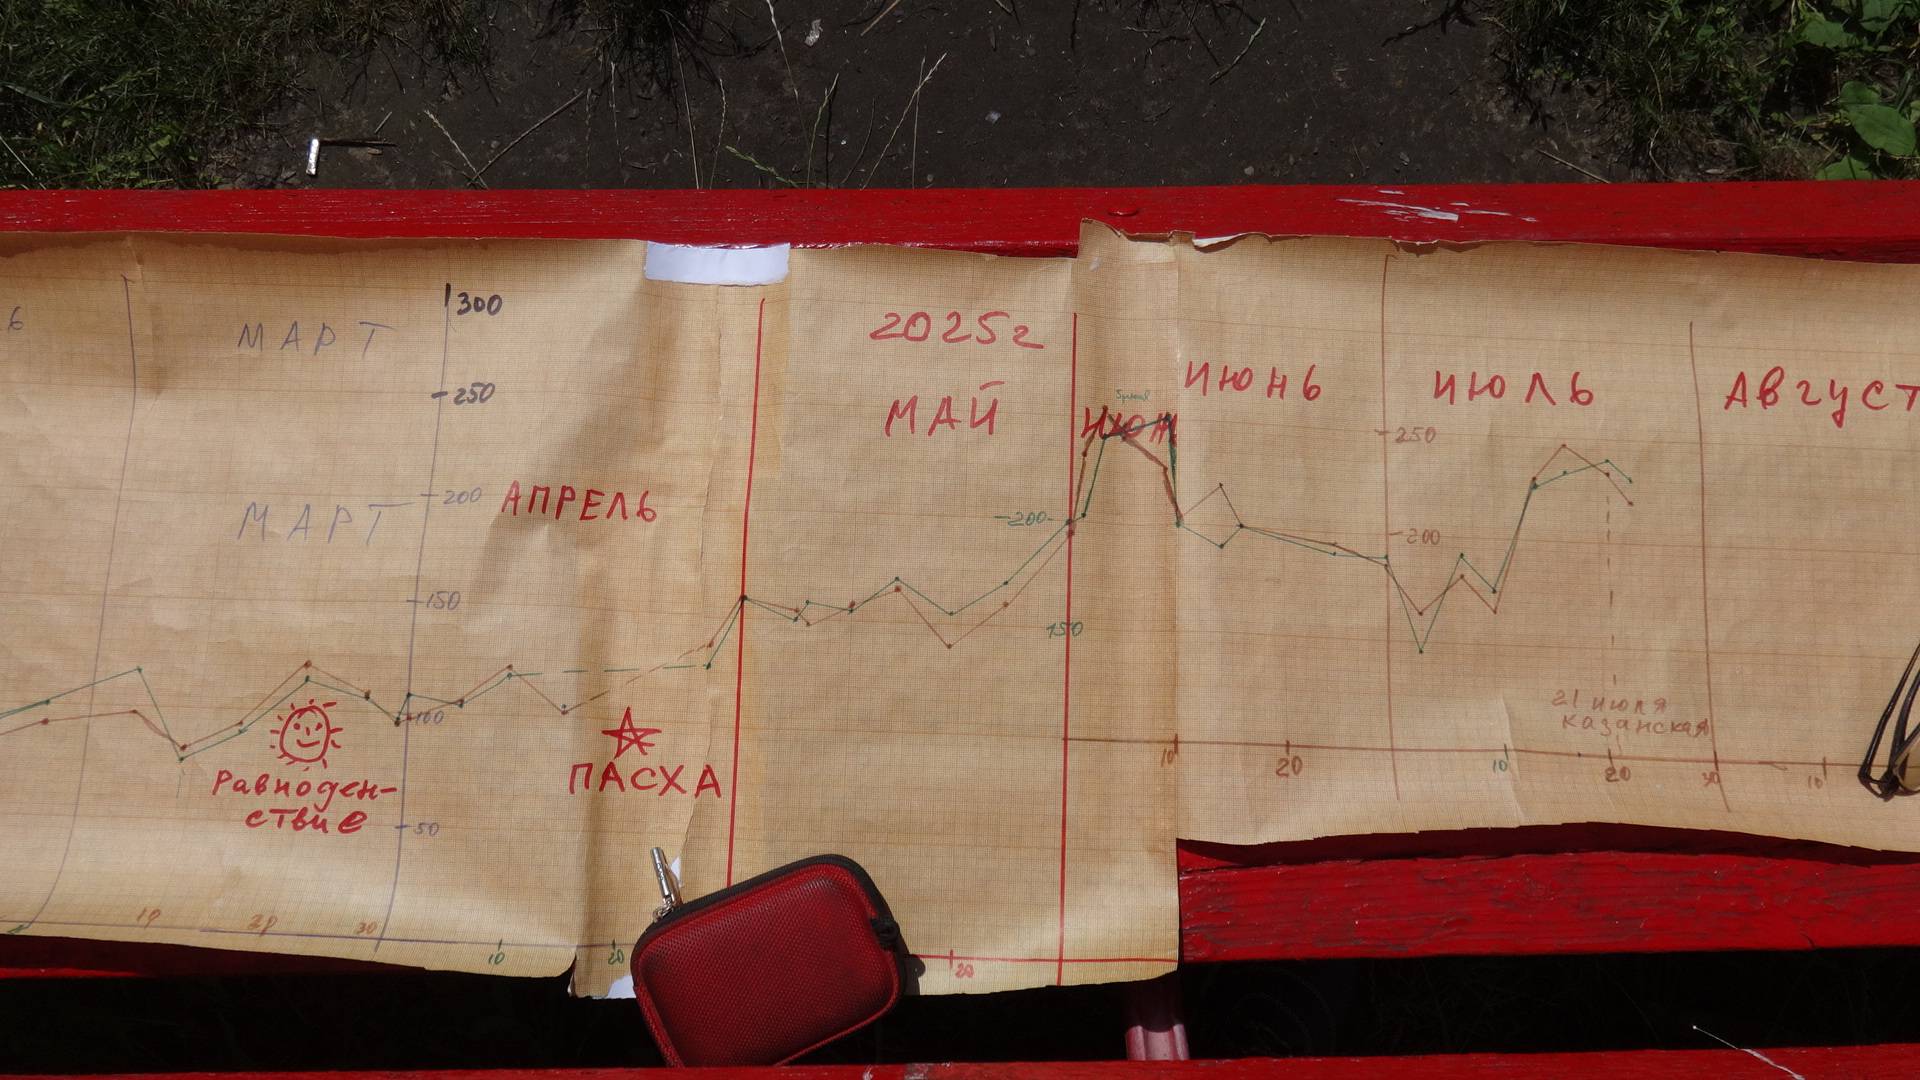 МАРТ
300
250
МАРТ
200
150
100
50
Равноден-
ствие
10
20
30
АПРЕЛЬ
ПАСХА
10
20
2025г
МАЙ
200
150
20
ИЮН
ИЮНЬ
10
20
ИЮЛЬ
250
200
21 июля
Казанская
10
20
30
АВГУСТ
10